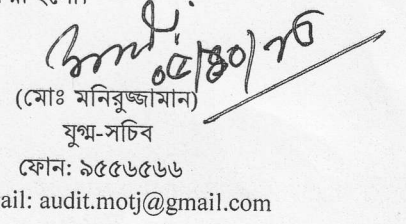 ০৫/১০/২৫
(মোঃ মনিরুজ্জামান)
যুগ্ম-সচিব
ফোন: ৯৫৫৬৫৬৬
ail: audit.motj@gmail.com